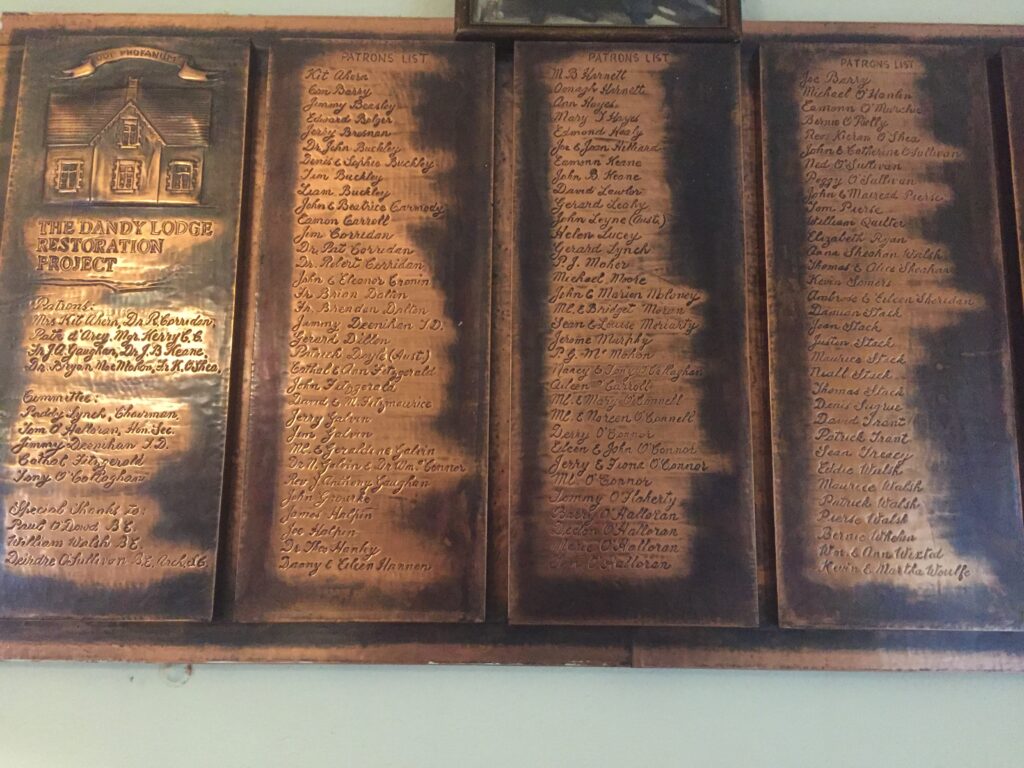 PROFANUM
THE DANDY LODGE
RESTORATION
PROJECT
Patrons:
Mrs Kit Ahern, Dr R. Corridan,
Path d'Arcy, Mgr. Kerry C.C.
Fr J.A. Gaughan, Dr J.B Keane
Dr. Bryan MacMahon, Fr K. O'Shea,
Committee:
Paddy Lynch, Chairman,
Tom O'Halloran, Hon. Sec.
Jimmy Deenihan T.D.
Cathal Fitzgerald
Tony O'Callaghan
Special Thanks to:
Paul O'Dowd B.E.
William Walsh B.E.
Deirdre O'Sullivan B.E.
PATRONS LIST
Kit Ahern
Con Barry
Jimmy Beasley
Edward Bolger
Jerry Brosnan
Dr John Buckley
Denis & Sophie Buckley
Tim Buckley
Liam Buckley
John & Beatrice Carmody
Eamon Carroll
Jim Corridan
Dr. Pat Corridan
Dr. Robert Corridan
John & Eleanor Cronin
Fr. Brian Dalton
Fr. Brendan Dalton
Jimmy Deenihan T.D.
Gerard Dillon
Patrick Doyle (Aust)
Cathal & Ann Fitzgerald
John Fitzgerald
David & M. Fitzmaurice
Jerry Galvin
Jim Galvin
Ml. & Geraldine Galvin
Dr M. Galvin & Dr Wm O'Connor
Rev J Anthony Gaughan
John Grourke
James Halpin
Joe Halpin
Dr Thos Hanky
Danny & Eileen Hannon
PATRONS LIST
M.B Harnett
Oonagh Harnett
Ann Hayes
Mary T Hayes
Edmond Healy
Joe & Joan Hilliard
Eamonn Keane
John B. Keane
David Lawlor
Gerard Leahy
John Leyne (Aust)
Helen Lucey
Gerard Lynch
P.J. Maher
Michael Moore
John & Marion Moloney
Ml. & Bridget Moran
Sean & Louise Moriarty
Jerome Murphy
P.G. Mc Mahon
Nancy & Tony O'Callaghan
Aileen O'Carroll
Ml. & Mary O'Connell
Ml. & Noreen O'Connell
Derry O'Connor
Eileen & John O'Connor
Jerry & Fiona O'Connor
Ml. O'Connor
Tommy O'Flaherty
Barry O'Halloran
Declan O'Halloran
Marie O'Halloran
O'Halloran
PATRONS LIST
Joe Barry
Michael O'Hanlon
Eamonn O'Murchu
Bernie O'Reilly
Rev. Kieran O'Shea
John & Catherine O'Sullivan
Ned O'Sullivan
Peggy O'Sullivan
John & Mairead Pierse
Tom Pierse
William Quilter
Elizabeth Ryan
Anna Sheahan Walsh
Thomas & Olive Sheahan
Kevin Somers
Ambrose & Eileen Sheridan
Damian Stack
Joan Stack
Justin Stack
Maurice Stack
Niall Stack
Thomas Stack
Denis Sugrue
David Trant
Patrick Trant
Sean Treacy
Eddie Walsh
Maurice Walsh
Patrick Walsh
Pierse Walsh
Bernie Whelan
Wm. & Ann Wixted
Kevin & Martha Woulfe